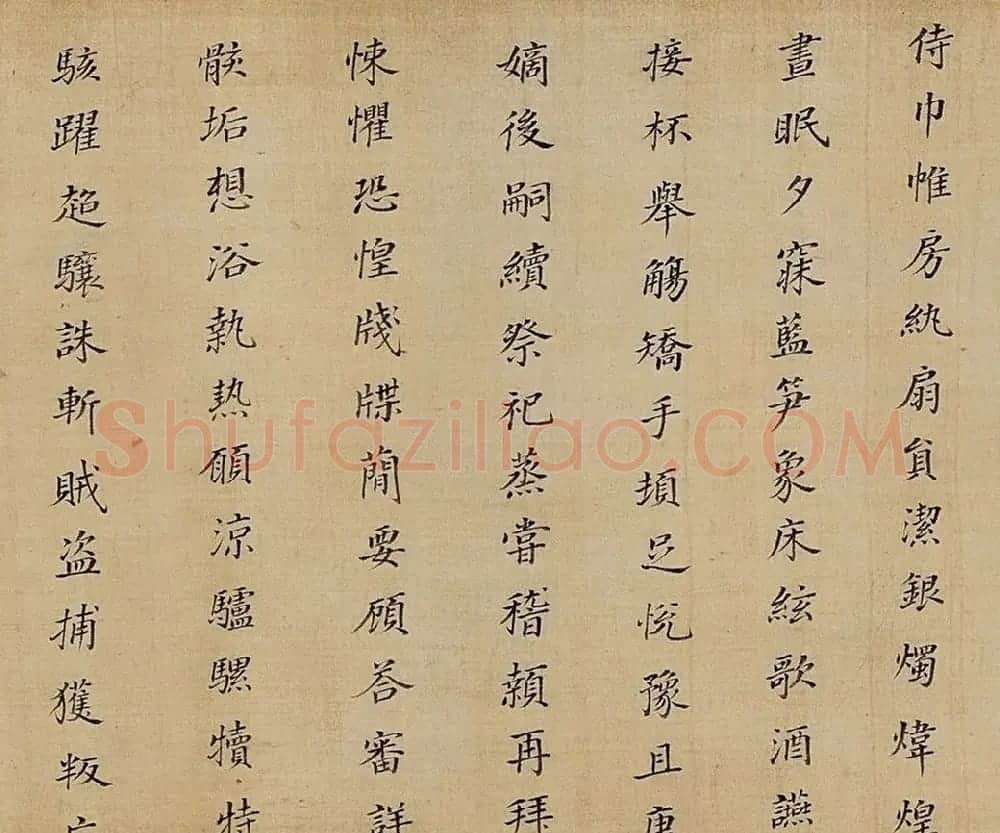 侍巾帷房紈扇貟潔銀燭煒煌
晝眠夕寐藍笋象床絃歌酒讌
接杯舉觴矯手頓足悅豫且康
嫡後嗣續祭祀蒸嘗稽顙再拜
悚懼恐惶牋牒簡要顧荅審詳
骸垢想浴執熱願涼驢騾犢特
駭躍超驤誅斬賊盜捕獲叛亡
Shufaziliao.COM